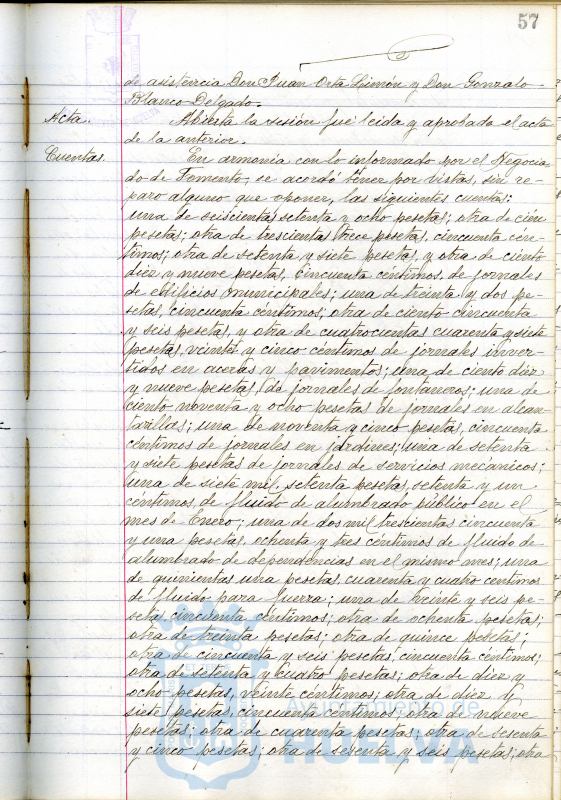 57
de asistencia Don Juan Orta Limón y Don Gonzalo
Blanco Delgado.
Acta. Abierta la sesión fué leida y aprobada el acta
de la anterior.
Cuentas. En armonía con lo informado por el Negocia-
do de Fomento, se acordó tener por vistas, sin re-
paro alguno que oponer, las siguientes cuentas:
una de seiscientas setenta y ocho pesetas; otra de cien
pesetas; otra de trescientas trece pesetas, cincuenta cén-
timos; otra de setenta y siete pesetas, y otra de ciento
diez y nueve pesetas, cincuenta céntimos, de jornales
de edificios municipales; una de treinta y dos pe-
setas, cincuenta céntimos; otra de ciento cincuenta
y seis pesetas, y otra de cuatrocientas cuarenta y siete
pesetas, veinte y cinco céntimos de jornales inver-
tidos en aceras y pavimentos; una de ciento diez
y nueve pesetas, de jornales de fontaneros; una de
ciento noventa y ocho pesetas de jornales en alcan-
tarillas; una de noventa y cinco pesetas, cincuenta
céntimos de jornales en jardines; una de setenta
y siete pesetas de jornales de servicios mecanicos;
una de siete mil, setenta pesetas, setenta y un
céntimos, de fluido de alumbrado público en el
mes de Enero; una de dos mil trescientas cincuenta
y una pesetas, ochenta y tres céntimos de fluido de
alumbrado de dependencias en el mismo mes; una
de quinientas una pesetas, cuarenta y cuatro centimos
de fluido para fuerza; una de treinta y seis pe-
setas, cincuenta céntimos; otra de ochenta pesetas;
otra de treinta pesetas; otra de quince pesetas;
otra de cincuenta y seis pesetas, cincuenta céntimos;
otra de setenta y cuatro pesetas; otra de diez y
ocho pesetas, veinte céntimos; otra de diez y
siete pesetas, cincuenta céntimos; otra de nueve
pesetas; otra de cuarenta pesetas; otra de sesenta
y cinco pesetas; otra de sesenta y seis pesetas; otra
Ayuntamiento de
HUELVA